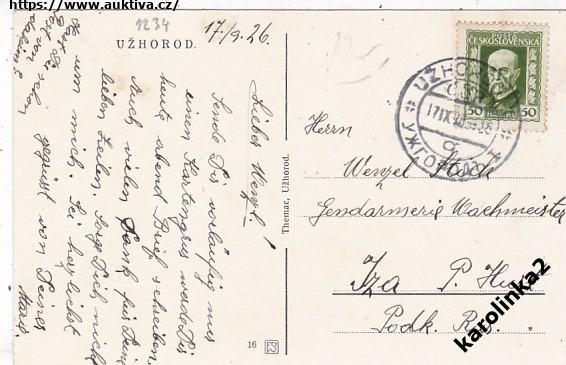 https://www.auktiva.cz/
1234
UŽHOROD.
17/9.26.
Lieber Wenzl!
Sende Dir vorläufig nur
einen Kartengrus werde Dir
heute abend Brief schreiben.
Auch vielen Dank für Deine
lieben Zeilen. Sorge Dich nicht
um mich. Sei herzlichst
gegrüst von Deinem
Themac, Užhorod.
16
POŠTA
ČESKOSLOVENSKÁ
50 50
UŽHOROD
УЖГОРОД
17.IX.26
Herrn
Wenzel
Gendarmerie Wachmeister
Iza P.
Podk. Rus.
karolinka2